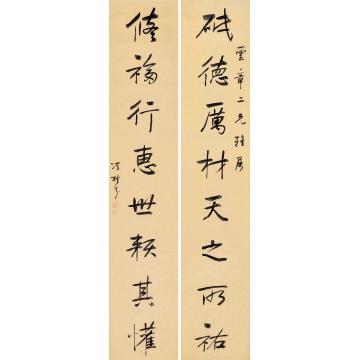 砥德厲材天之所祐
雲章二兄雅屬
脩福行惠世賴其懽
馮桂芬